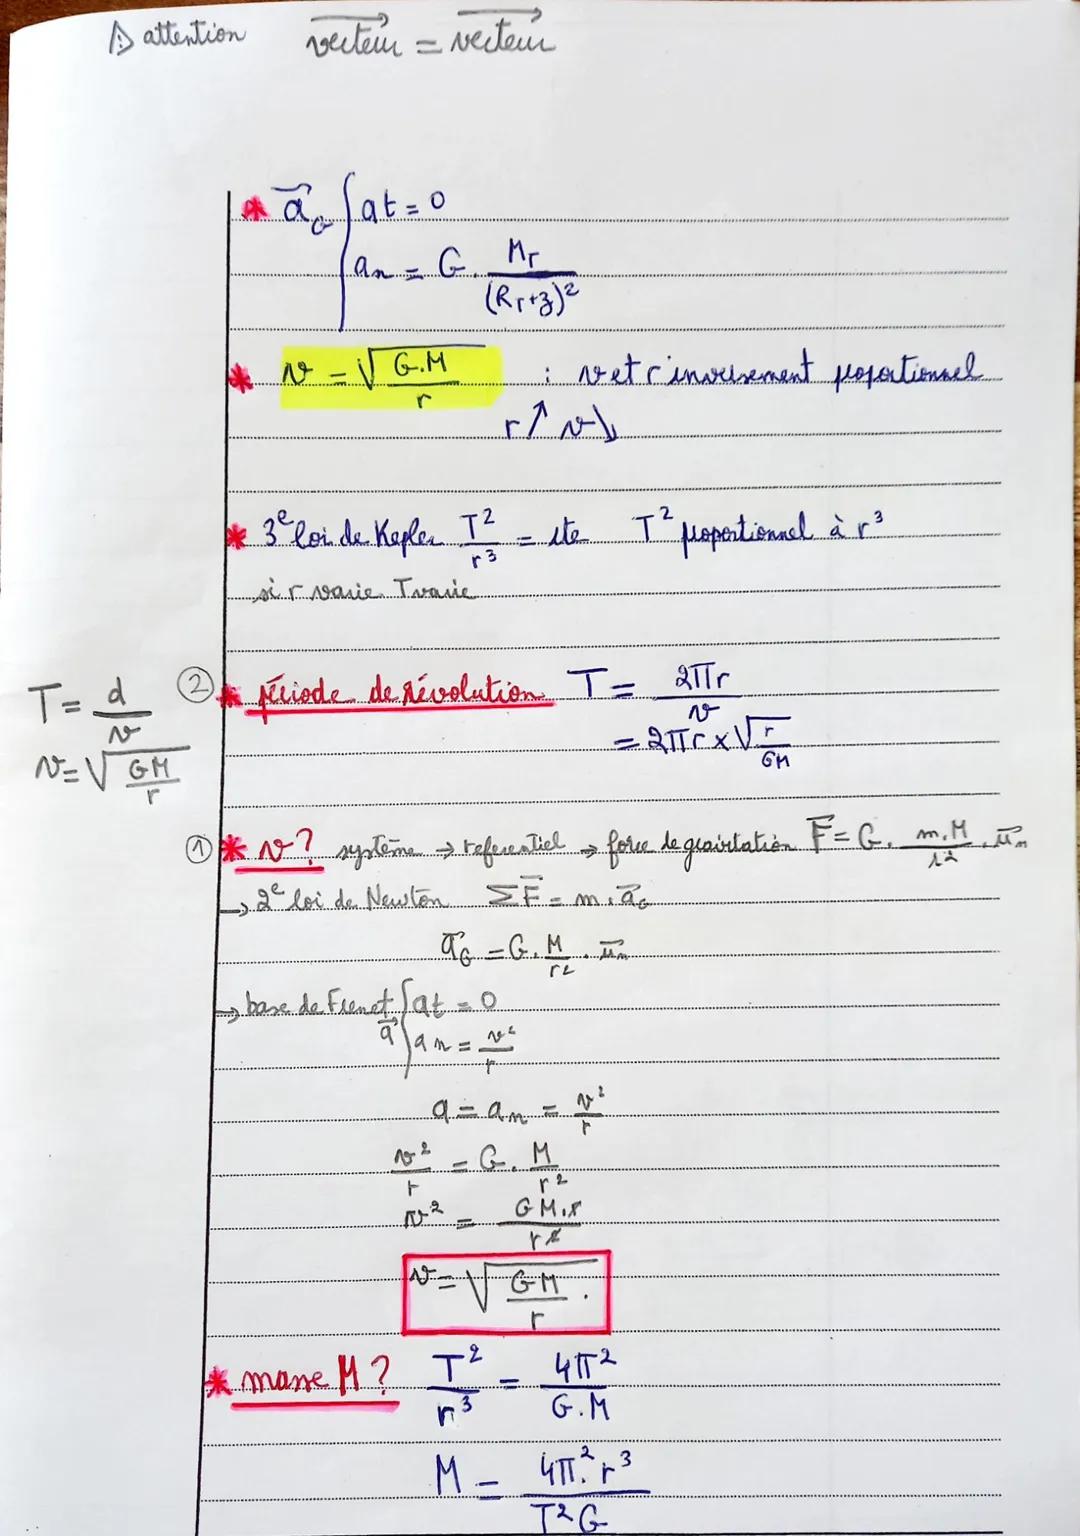 ⚠ attention vecteur = vecteur
* a⃗G { at = 0
an = G . MT / (RT+z)²
* v = √(G.M / r) : v et r inversement proportionnel
r ↑ v ↘
* 3e loi de Kepler T² / r³ = cte T² proportionnel à r³
si r varie T varie
② * période de révolution T = 2πr / v
= 2πr × √(r / GM)
T = d / v
v = √(GM / r)
① * v? système → referentiel → force de gravitation F⃗ = G . m.M / r² . u⃗n
→ 2e loi de Newton ΣF⃗ = m . a⃗G
a⃗G = G . M / r² . u⃗n
→ base de Frenet a⃗ { at = 0
an = v² / r
a = an = v² / r
v² / r = G . M / r²
v² = GM.r / r²
v = √(GM / r) .
* masse M? T² / r³ = 4π² / G.M
M = 4π².r³ / T²G